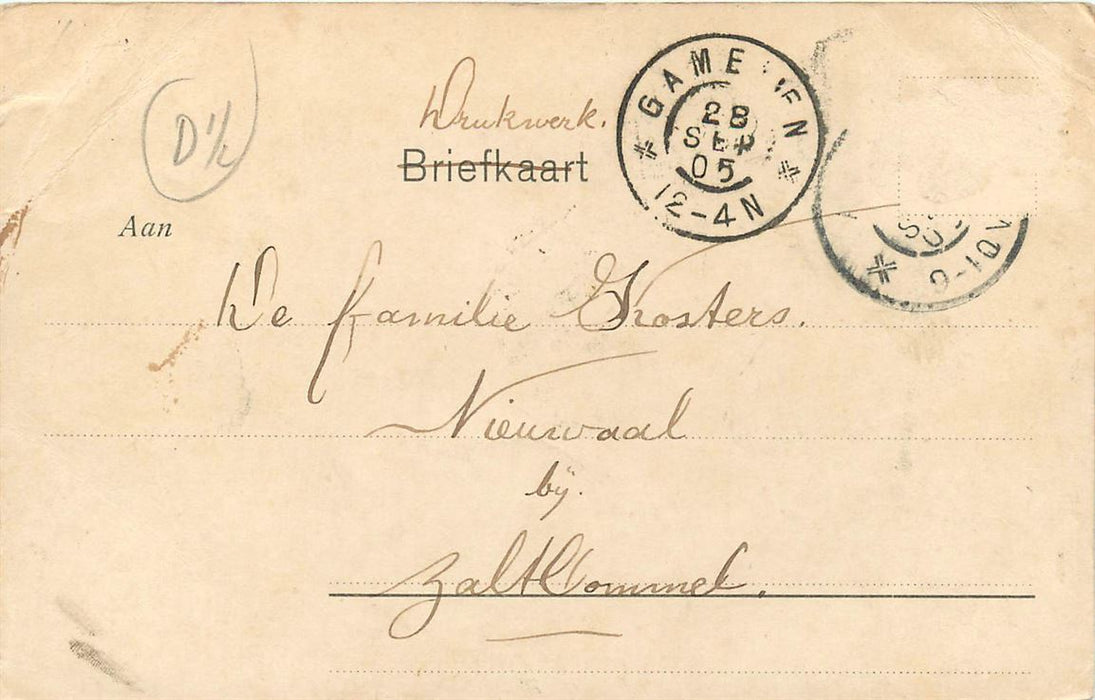 D 1/2
Drukwerk.
Briefkaart
GAME EN
28
SEP
05
12-4N
Aan
De familie Kosters.
Nieuwaal
bij.
Zaltbommel.